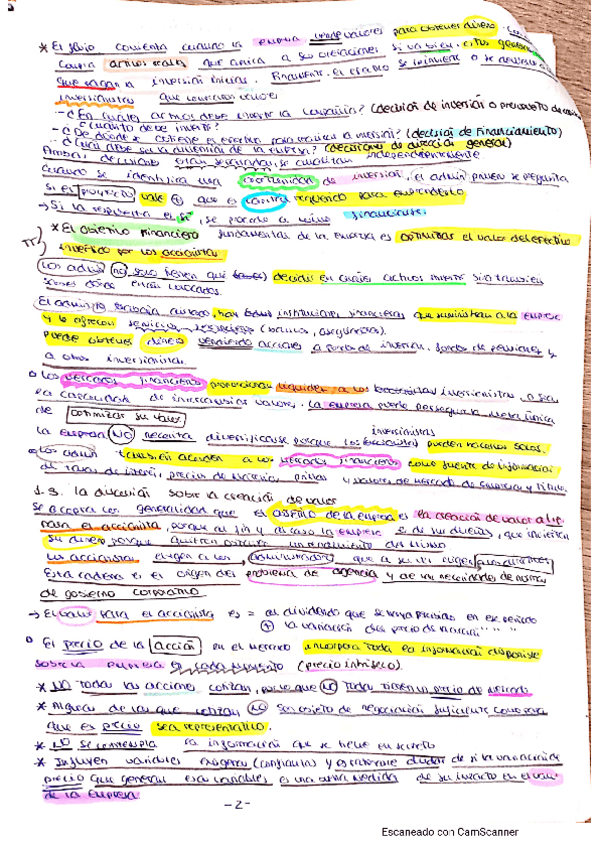 * El flujo comienza cuando la empresa vende valores para obtener dinero. Con
Compra activos reales que arrica a sus operaciones si va bien, estos generan
que pagan la inversión inicial. Finalmente, el efectivo se reinvierte o se
inversionistas que compraron valores
- ¿En cuáles activos debe invertir la compañía? (decisión de inversión o presupuesto de
¿Cuánto debe invertir?
- ¿De dónde obtiene el efectivo para realizar la inversión? (decisión de financiamiento)
- ¿Cuál debe ser la dimensión de la empresa? (decisiones de dirección general)
decisiones están separadas, se analizan independientemente
Cuando se identifica una oportunidad de inversión, el admin primero se pregunta
Si el proyecto vale + que el capital requerido para emprenderlo
→ Si la respuesta es sí, se procede a financiarlo.
* El objetivo financiero fundamental de la empresa es optimizar el valor del efectivo
invertido por los accionistas
Los admin no solo tienen que decidir en cuáles activos invertir sino también
dónde están colocados.
El admin no trabaja aislado, hay instituciones financieras que suministran a la empresa
y le ofrecen servicios, (bancos, aseguradoras).
Puede obtener dinero vendiendo acciones a fondos de inversión, fondos de pensiones y
a otros inversionistas.
o Los mercados financieros proporcionan liquidez a los inversionistas, o sea
la capacidad de intercambiar valores. La empresa puede perseguir la meta única
de optimizar su valor
inversionistas
La empresa NO necesita diversificarse porque los pueden hacerlo solos.
o Los admin también acceden a los mercados financieros como fuente de información
de tasas de interés, precios de materias primas y valores de mercado de empresa y títulos.
1.3. La discusión sobre la creación de valor
Se acepta con generalidad que el objetivo de la empresa es la creación de valor a l.p.
para el accionista, porque al fin y al cabo la empresa es de sus dueños, que invierten
su dinero porque quieren percibir un rendimiento del mismo
Los accionistas eligen a los administradores que a su vez eligen
Esta cadena es el origen del problema de agencia y de las necesidades de normas
de gobierno corporativo
→ El valor para el accionista es = al dividendo que se haya percibido en ese período
+ la variación del precio de la acción " " "
o El precio de la acción en el mercado incorpora toda la información disponible
sobre la empresa en cada momento (precio intrínseco).
* NO todas las acciones cotizan, por lo que NO todas tienen un precio de mercado
* Algunas de las que cotizan NO son objeto de negociación suficiente como para
que el precio sea representativo.
* NO se contempla la información que se tiene en secreto
* Influyen variables exógenas y es razonable dudar de si la variación de
precio que generan esas variables es una buena medida de su impacto en el valor
de la empresa
-2-
Escaneado con CamScanner